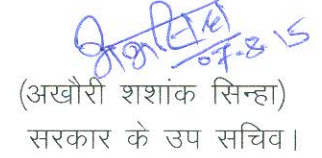 07-8-15
(अखौरी शशांक सिन्हा)
सरकार के उप सचिव।